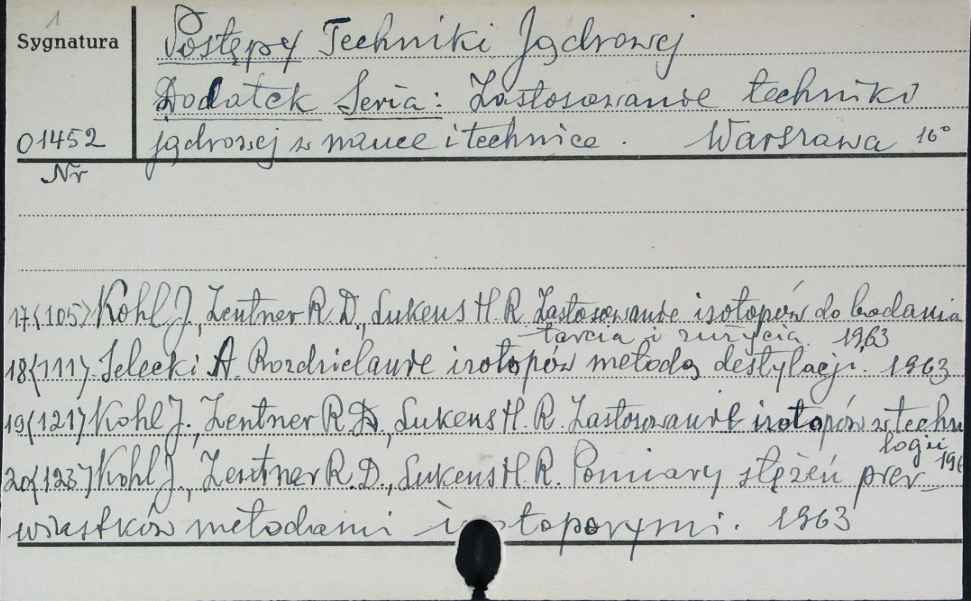 1
Sygnatura
Postępy Techniki Jądrowej
Dodatek Seria: Zastosowanie techniki
01452 jądrowej w nauce i technice. Warszawa 16°
Nr
17(105) Kohl J., Zentner R.D., Lukens H.R. Zastosowanie izotopów do badania
tarcia i zużycia. 1963
18(111) Selecki A. Rozdzielanie izotopów metodą destylacji. 1963
19(121) Kohl J., Zentner R.D., Lukens H.R. Zastosowanie izotopów w techno
logii 196
20(123) Kohl J., Zentner R.D., Lukens H.R. Pomiary stężeń pier-
wiastków metodami izotopowymi. 1963